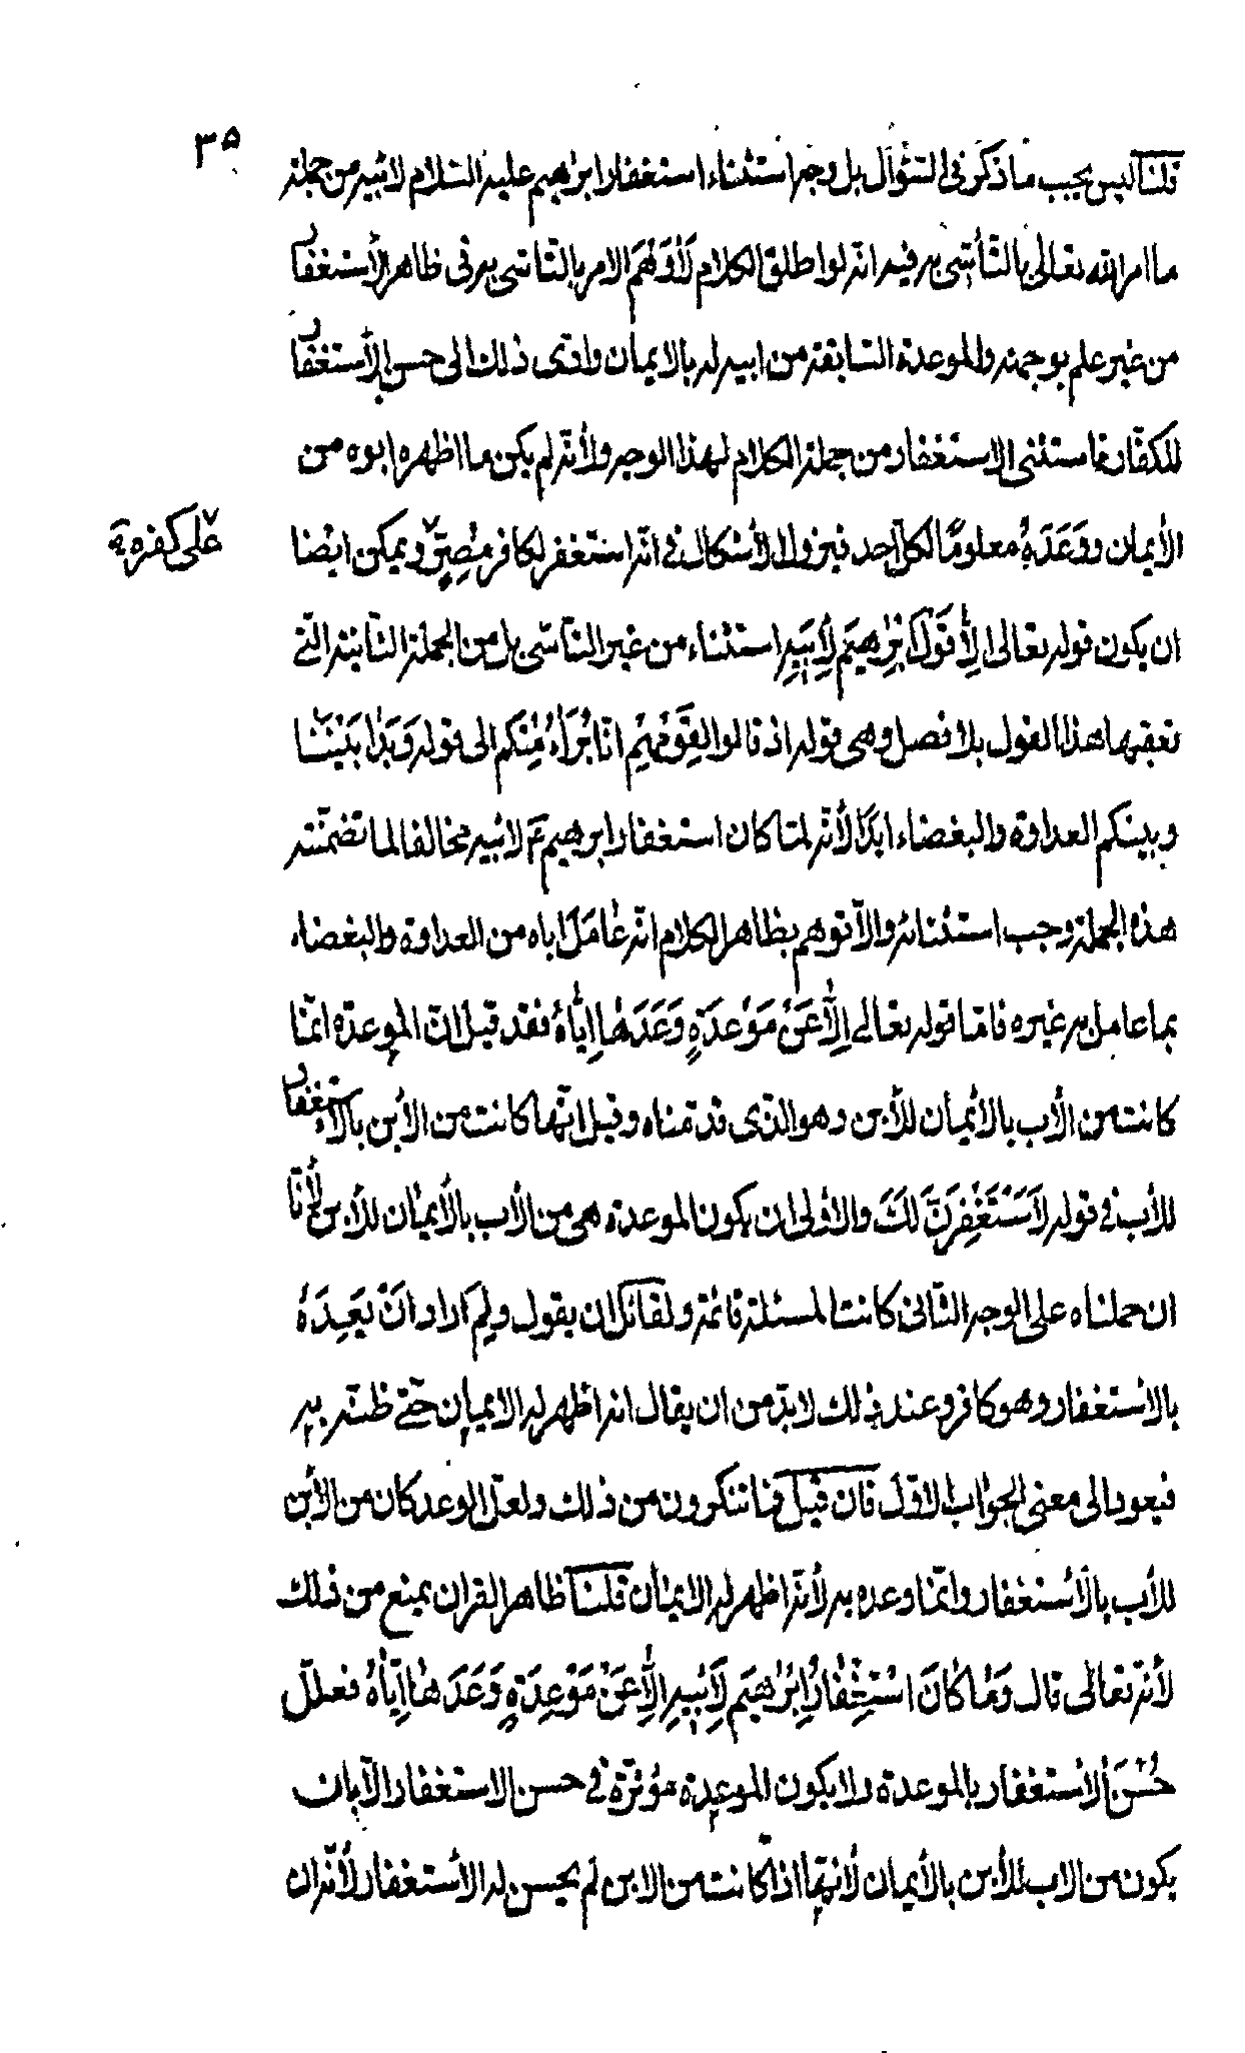 ٣٥
قلنا ليس يجب ما ذكر في السّؤال بل وجه استثناء استغفار ابرٰهيم عليه السّلام لابيه من جملة
ما امر الله تعالى بالتّأسّى به فيه انّه لو اطلق الكلام لَأَوْهَمَ الامر بالتّاسّى به في ظاهر الأستغفار
من غير علم بوجهه والموعدة السّابقة من ابيه له بالايمان وادّى ذلك الى حسن الأستغفار
للكفّار فاستثنى الاستغفار من جملة الكلام لهذا الوجه ولأنّه لم يكن ما اظهره ابوه من
الأيمان ووَعَدَهُ معلومًا لكلّ احد فيزول الأشكال في انّه استغفر لكافر مُصِرٍّ ويمكن ايضا
على كفره
ان يكون قوله تعالى اِلّٰا قَوْلَ اِبْرٰهيمَ لِأَبيهِ استثناء من غير التّأسّى بل من الجملة الثّانية الّتي
تعقبها هذا القول بلا فصل وهى قوله اذ قالوا لِقَوْمِهِمْ انّا بُرَآءُ مِنْكم الى قوله وَبَدٰا بَيْنَنٰا
وبينكم العداوة والبغضاء ابدًا لأنّه لمّا كان استغفار ابرهيم ع لابيه مخالفا لما تضمّنته
هذه الجملة وجب استثنائه والّا توهم بظاهر الكلام انّه عٰامَلَ اباه من العداوة والبغضاء
بما عامل به غيره فامّا قوله تعالے اِلّٰا عَنْ مَوْعِدَةٍ وَعَدَهٰا اِيّٰاهُ فقد قيل انّ الموعدة انّما
كانت من الأب بالأيمان للأبن وهو الّذى قدّمناه وقيل انّها كانت من الأبن بالاستغفار
للأب في قوله لَاَسْتَغْفِرَنَّ لَكَ والاولى ان يكون الموعدة هى من الأب بالأيمٰان للأبن لأنّا
ان حملناه على الوجه الثّانى كانت المسئلة قائمة ولقائل ان يقول ولِمَ اراد اَنْ يَعِدَهُ
بالأستغفار وهو كافر وعند ذلك لا بدّ من ان يقال انه اظهر له الايمان حتّے ظنّه به
فيعود الى معنى الجوٰاب الاوّل فان قيل فما تنكرون من ذلك ولعلّ الوعد كان من الأبن
للأب بالأستغفار وانّما وعده به لأنّه اظهر له الايمٰان قلنا ظاهر القران يمنع من ذلك
لأنّه تعالى قال وَمٰا كٰانَ اسْتِغْفٰارُ اِبْرٰهيمَ لِأَبيهِ اِلّٰا عَنْ مَوْعِدَةٍ وَعَدَهٰا اِيّٰاهُ فعلّل
حُسْنَ الأستغفار بالموعدة ولا يكون الموعدة مؤثّرة في حسن الاستغفار الّا بان
يكون من الاب للأبن بالأيمان لأنهّا اذا كانت من الابن لم يحسن له الأستغفار لأنّه ان